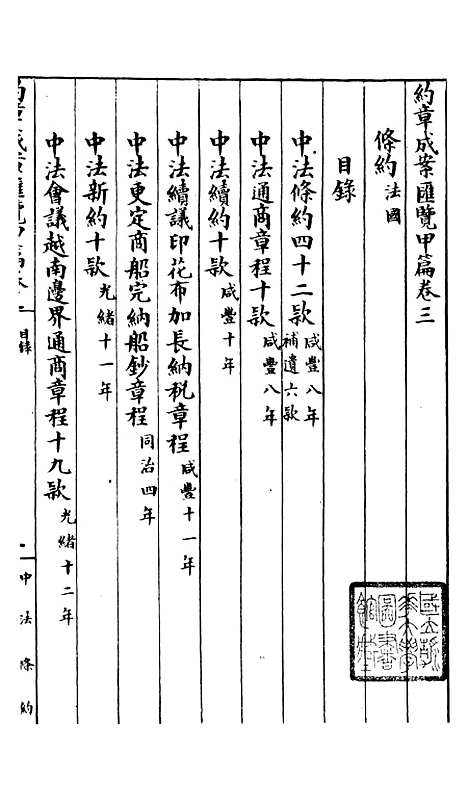 約章成案匯覽甲篇卷三
條約 法國
目錄
中法條約四十二款 咸豐八年 補遺六款
中法通商章程十款 咸豐八年
中法續約十款 咸豐十年
中法續議印花布加長納稅章程 咸豐十一年
中法更定商船完納船鈔章程 同治四年
中法新約十款 光緒十一年
中法會議越南邊界通商章程十九款 光緒十二年
目錄
中法條約